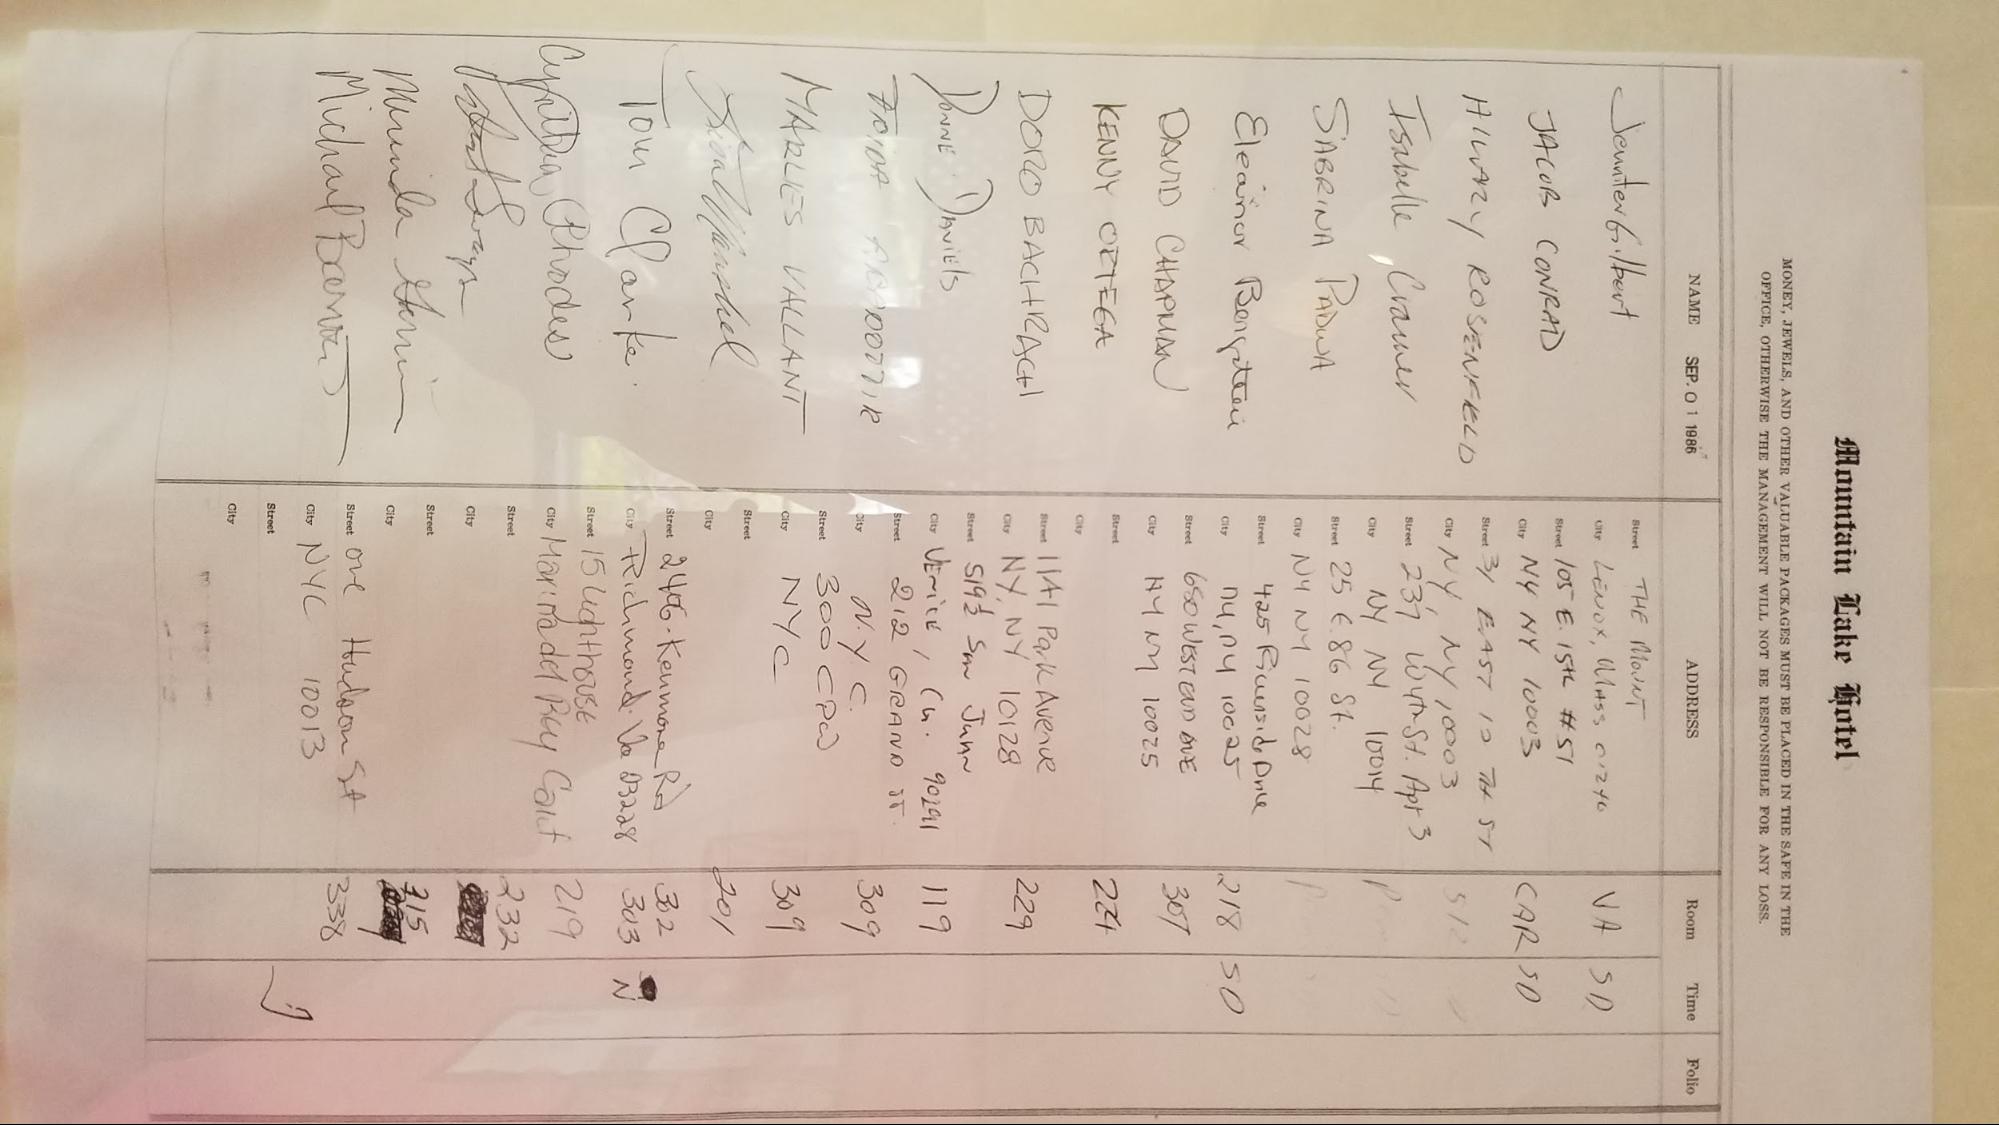 Mountain Lake Hotel
MONEY, JEWELS, AND OTHER VALUABLE PACKAGES MUST BE PLACED IN THE SAFE IN THE
OFFICE, OTHERWISE THE MANAGEMENT WILL NOT BE RESPONSIBLE FOR ANY LOSS.
NAME SEP. 01 1986 ADDRESS Room Time Folio
Jennifer Gilbert Street THE MOUNT VA SD
City Lenox, Mass 01240
JACOB CONRAD Street 105 E. 15th #51 CAR SD
City NY NY 10003
HILLARY ROSENFELD Street 31 EAST 10 TH ST
City NY, NY, 10003
Isabelle Cramer Street 237 W4th St. Apt 3
City NY NY 10014
SABRINA PADWA Street 25 E. 86 St.
City NY NY 10028
Eleanor Bergstein Street 425 Riverside Drive 218 SD
City NY, NY 10025
DAVID CHAPMAN Street 650 WEST END AVE 307
City NY NY 10025
KENNY ORTEGA Street 224
City
DORO BACHRACH Street 1141 Park Avenue 229
City NY, NY 10128
DONNE DANIELS Street 519½ San Juan 119
City Venice, Ca. 90291
Street 212 GRAND ST. 309
City N.Y.C.
MARLIES VALLANT Street 300 CPW 309
City NYC
Street 201
City
Tom Clarke Street 2406 Kenmore Rd 302
City Richmond Va 23228 303 N
Cynthia Rhodes Street 15 Lighthouse 219
City Marina del Rey Calif
Street 232
City
Street 215
City
Michael Street one Hudson St 338
City NYC 10013
Street
City